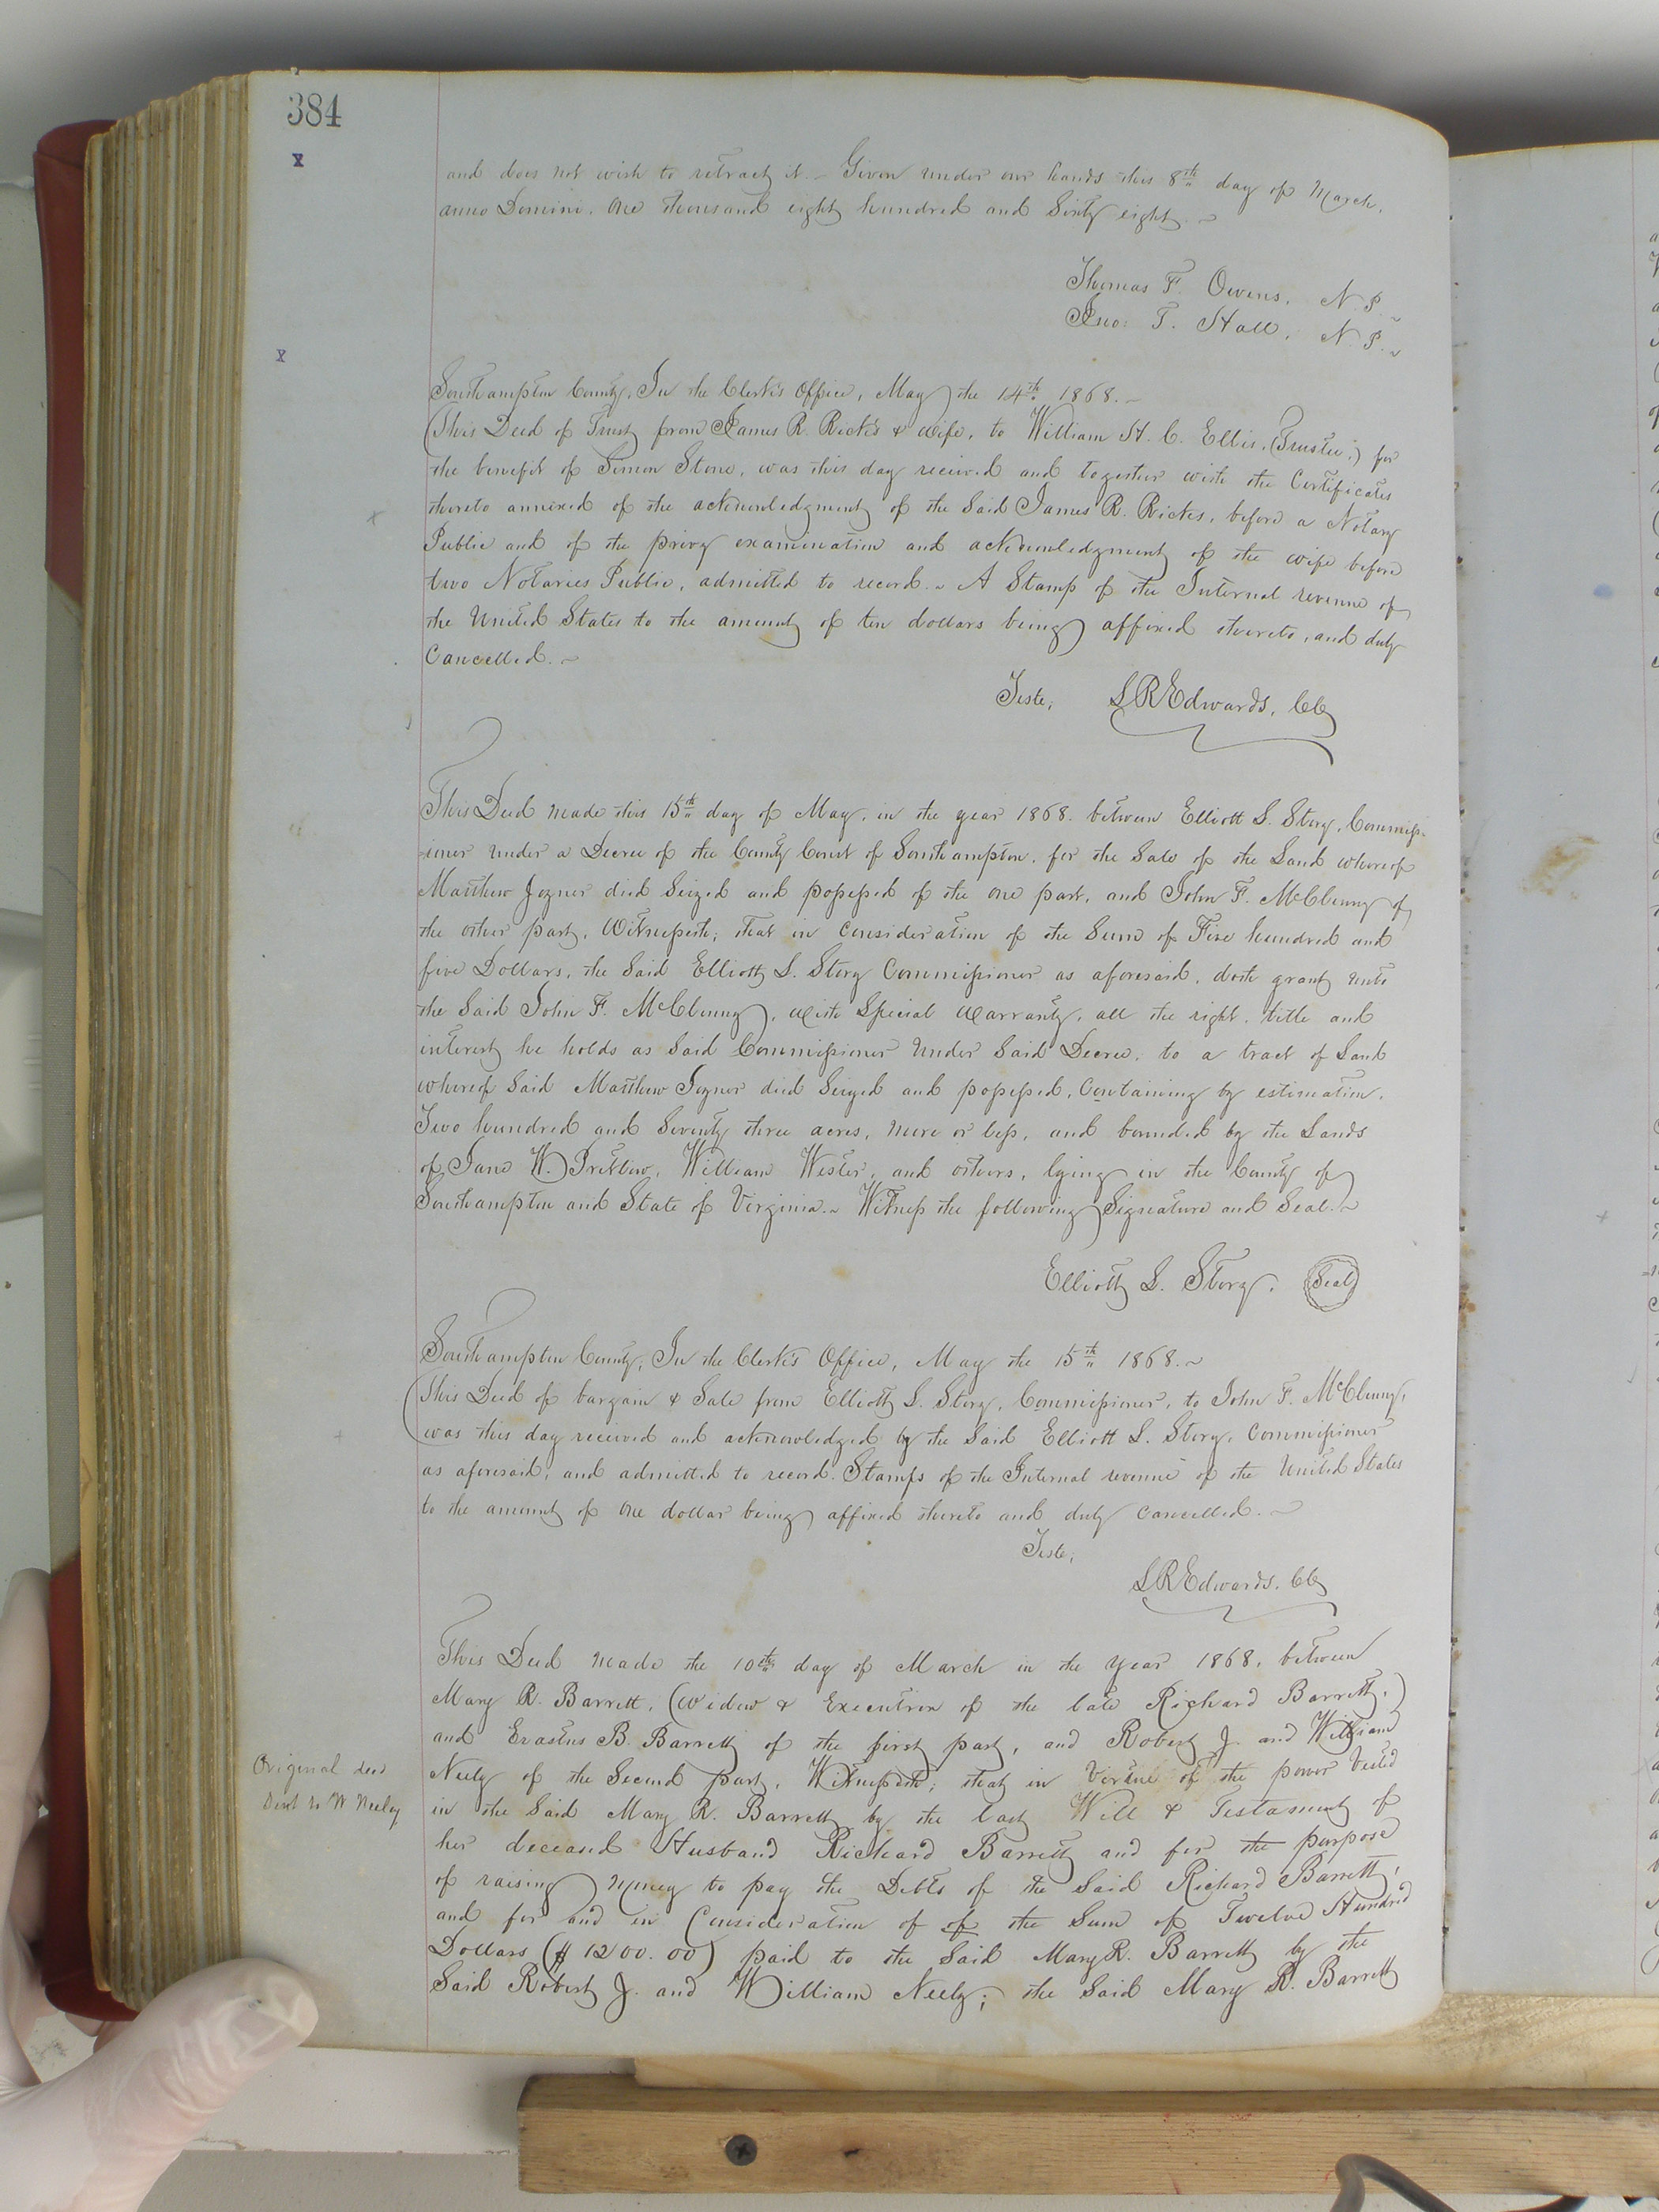 384
x
and does not wish to retract it. - Given under our hands this 8th day of March,
anno Domini. One thousand eight hundred and Sixty eight. ~
Thomas F. Owens, N. P. ~
Jno: T. Hall, N. P. ~
x
Southampton County, In the Clerk's Office, May the 14th 1868. ~
This Deed of Trust from James R. Ricks & wife, to William H. C. Ellis, (Trustee,) for
the benefit of Simon Stone, was this day received and together with the Certificates
thereto annexed of the acknowledgment of the Said James R. Ricks, before a Notary
x
Public and of the privy examination and acknowledgment of the wife before
two Notaries Public, admitted to record. ~ A Stamp of the Internal revenue of
the United States to the amount of ten dollars being affixed thereto, and duly
Cancelled. ~
Teste, L R Edwards, Clk
This Deed made this 15th day of May, in the year 1868. between Elliott L. Story, Commiss-
-ioner under a Decree of the County Court of Southampton, for the Sale of the Land whereof
Matthew Joyner died Seized and possessed of the one part, and John F. McClenny of
the other part, Witnesseth; that in Consideration of the Sum of Five hundred and
five Dollars, the Said Elliott L. Story Commissioner as aforesaid, doth grant unto
the Said John F. McClenny, with Special Warranty, all the right, title and
interest he holds as Said Commissioner Under Said Decree, to a tract of Land
whereof Said Matthew Joyner died Seized and possessed, Containing by estimation,
Two hundred and Seventy three acres, more or less, and bounded by the Lands
of Jane W. Pretlow, William Wester, and others, lying in the County of
Southampton and State of Virginia. ~ Witness the following Signature and Seal. ~
Elliott L. Story. (Seal)
Southampton County, In the Clerk's Office, May the 15th 1868. ~
This Deed of bargain & Sale from Elliott L. Story, Commissioner, to John F. McClenny,
was this day received and acknowledged by the Said Elliott L. Story, Commissioner
as aforesaid, and admitted to record. Stamps of the Internal revenue of the United States
to the amount of One dollar being affixed thereto and duly Cancelled. ~
Teste,
L R Edwards, Clk
This Deed made the 10th day of March in the year 1868, between
Mary R. Barrett, (Widow & Executrix of the late Richard Barrett,)
and Erastus B. Barrett of the first part, and Robert J. and William
Neely of the Second part, Witnesseth; that in Virtue of the power Vested
in the Said Mary R. Barrett by the last Will & Testament of
her deceased Husband Richard Barrett and for the purpose
of raising Money to pay the Debts of the Said Richard Barrett,
and for and in Consideration of of the Sum of Twelve Hundred
Dollars ($ 1200.00) paid to the Said Mary R. Barrett by the
Said Robert J. and William Neely; the Said Mary R. Barrett
Original deed
Sent to W Neeley